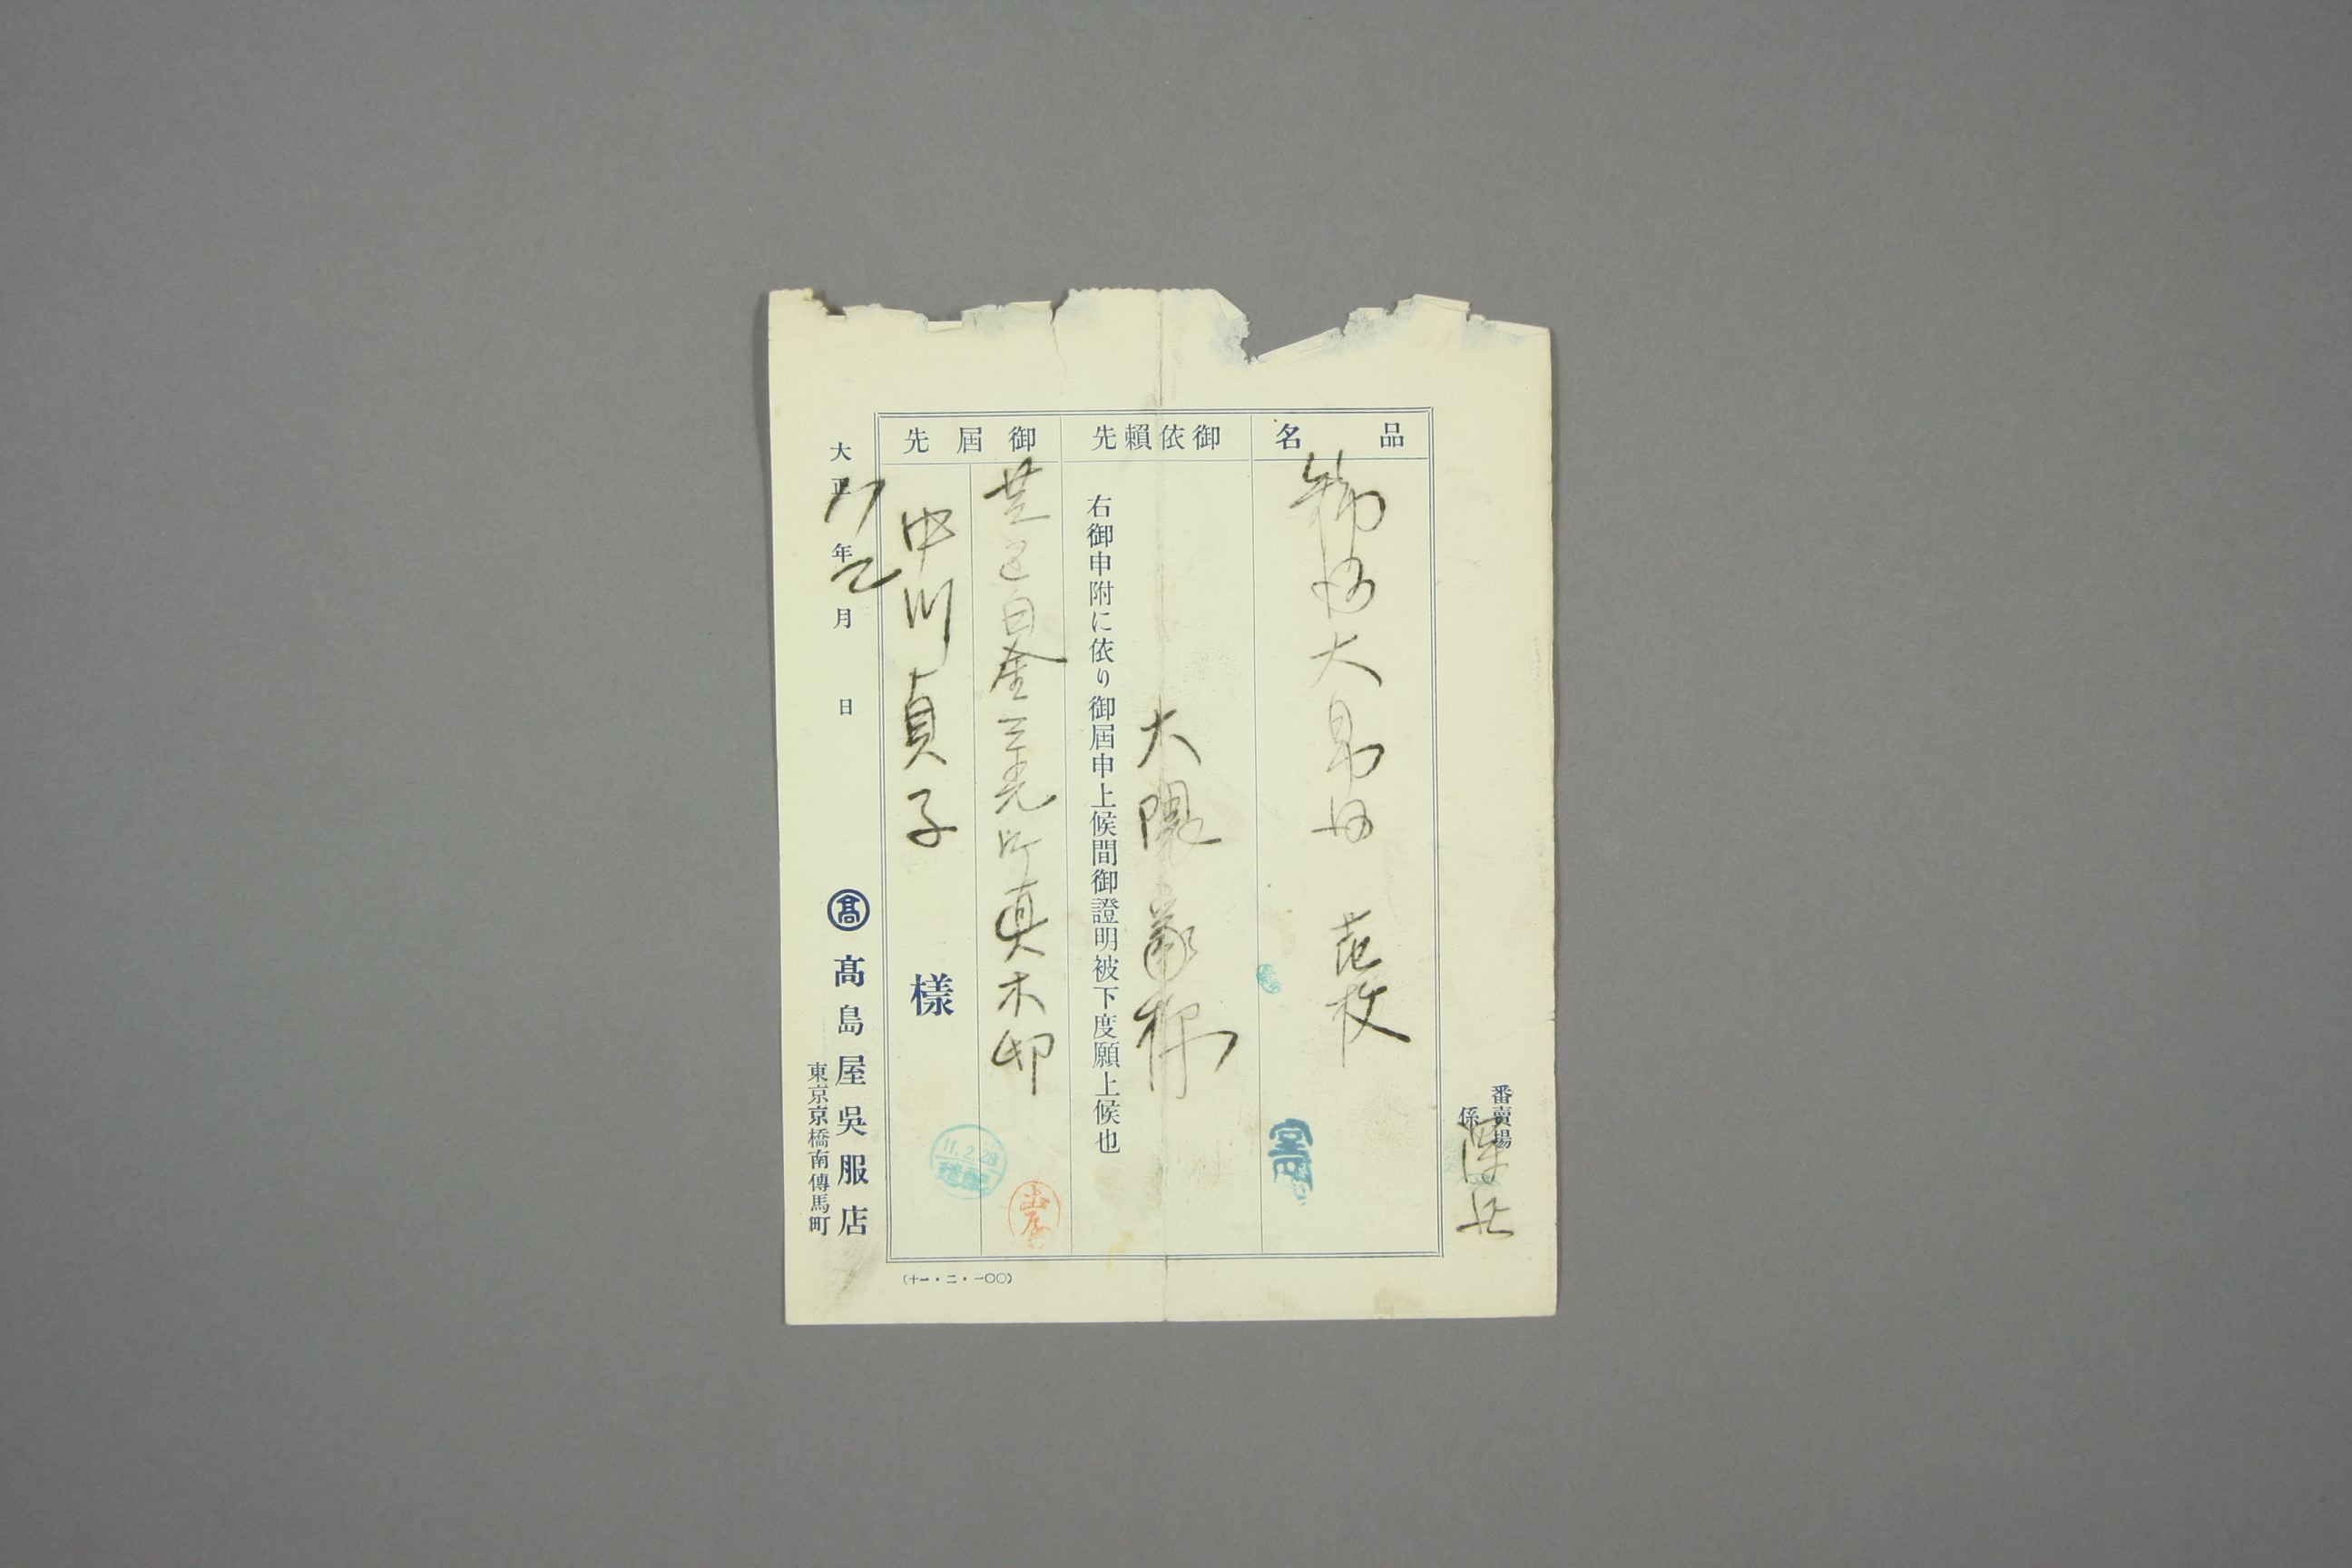 番賣場
係
品名
大 壱枚
御依頼先
大隈 様
右御申附に依り御屆申上候間御證明被下度願上候也
御屆先
芝区白金三光町真木邸
中川貞子
樣
大正11年2月 日
髙
髙島屋吳服店
東京京橋南傳馬町
11.2.28
(十一・二・一〇〇)